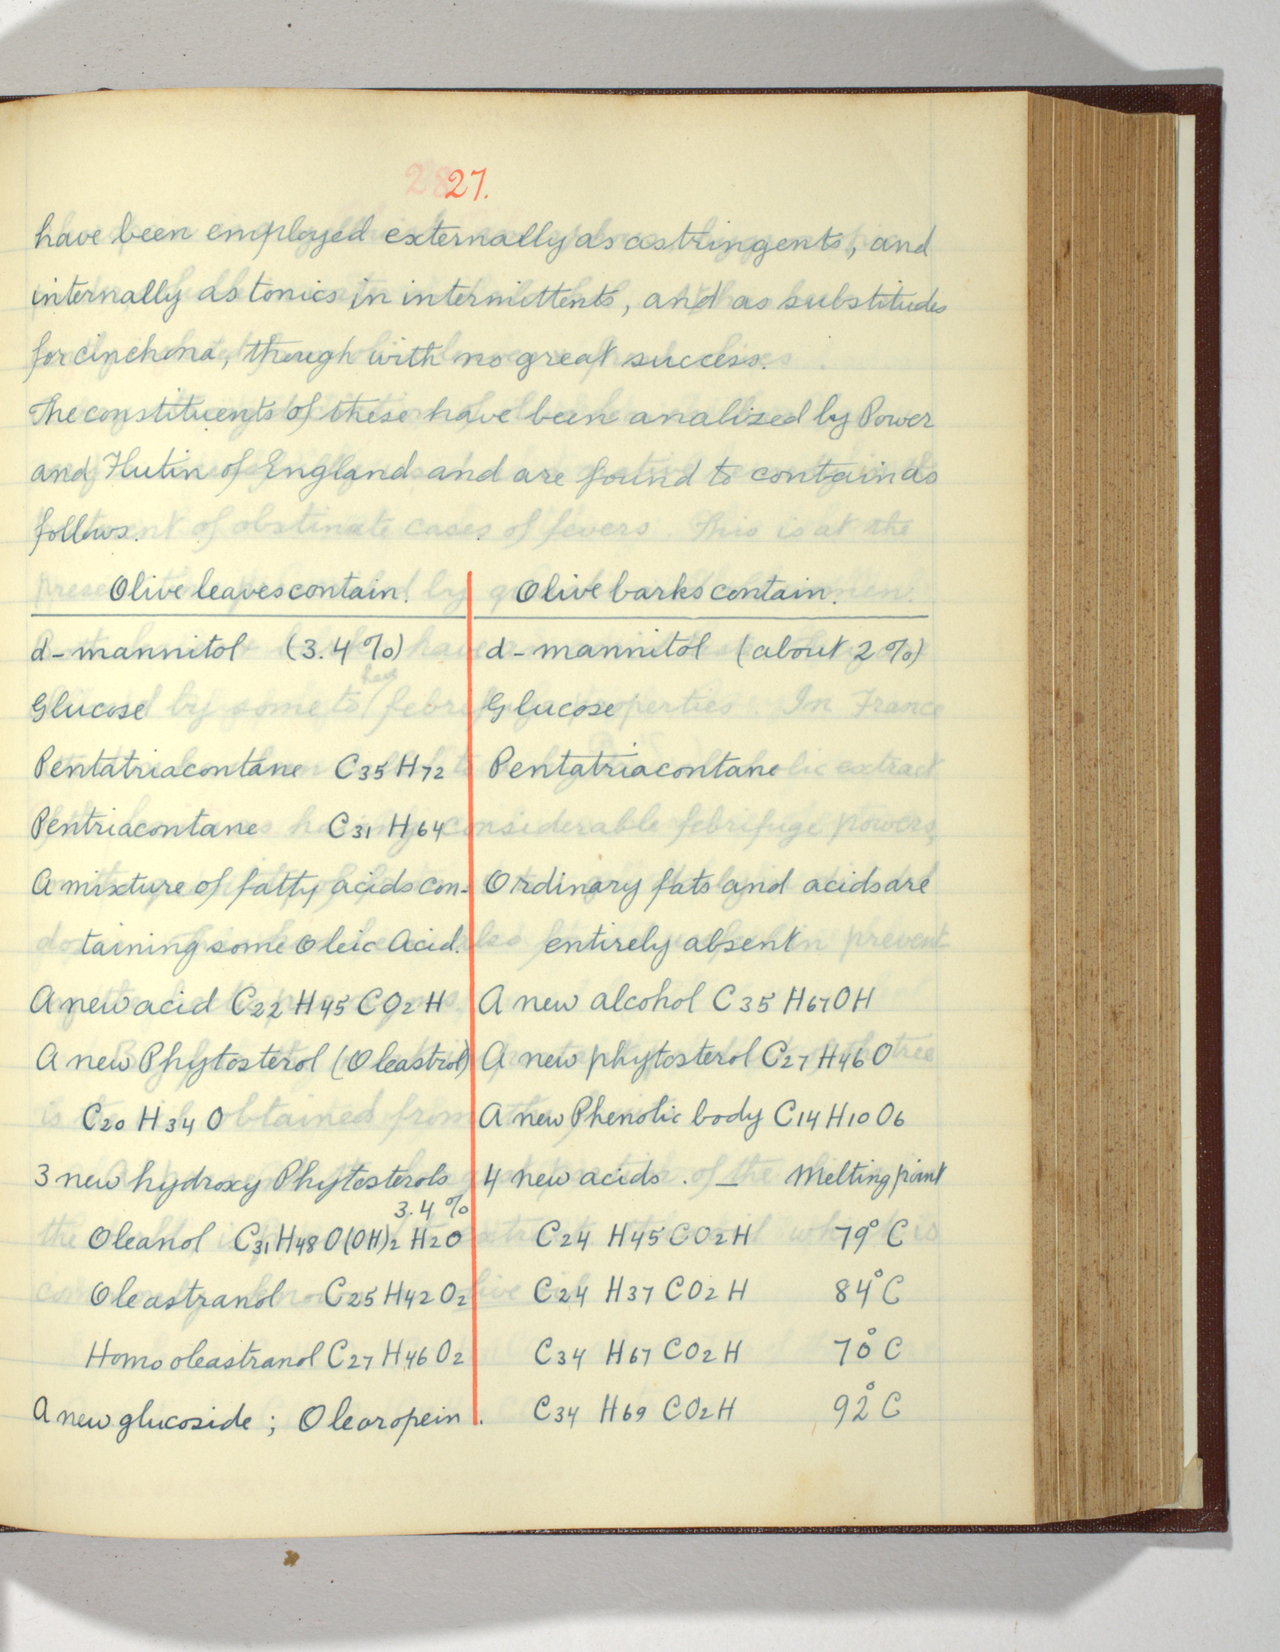 27.
have been employed externally as astringents, and
internally as tonics in intermittents, and as substitudes
for cinchona, though with no great success.
The constituents of these have been analized by Power
and Tlutin of England and are found to contain as
follows.
Olive leaves contain. Olive barks contain.
d-mannitol (3.4%) d-mannitol (about 2%)
Glucose Glucose
Pentatriacontane C35 H72 Pentatriacontane
Pentriacontane C31 H64
A mixture of fatty acids con- Ordinary fats and acids are
taining some Oleic Acid. entirely absent
A new acid C22 H45 CO2 H A new alcohol C35 H67 OH
A new Phytosterol (Oleastrol) A new phytosterol C27 H46 O
C20 H34 O A new Phenolic body C14 H10 O6
3 new hydroxy Phytosterols 4 new acids. — Melting point
3.4%
Oleanol C31 H48 O(OH)2 H2O C24 H45 CO2 H 79° C
Oleastranol C25 H42 O2 C24 H37 CO2 H 84° C
Homo oleastranol C27 H46 O2 C34 H67 CO2 H 70° C
A new glucoside; Olearopein. C34 H69 CO2 H 92° C